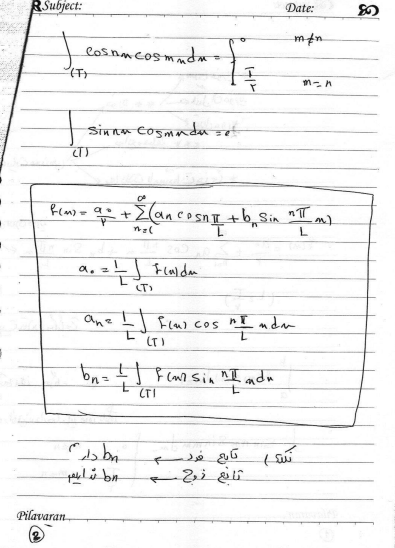 Subject: Date:
∫(T) cosnx cosmx dx = { 0 m≠n
T/۲ m=n
∫(T) sinnx cosmx dx = 0
f(x) = a۰/۲ + Σ(n=1, ∞) (an cosn π/L + bn sin nπ/L x)
a۰ = 1/L ∫(T) f(x) dx
an = 1/L ∫(T) f(x) cos nπ/L x dx
bn = 1/L ∫(T) f(x) sin nπ/L x dx
نکته) تابع فرد ← bn داریم
تابع زوج ← bn نداریم
Pilavaran
2